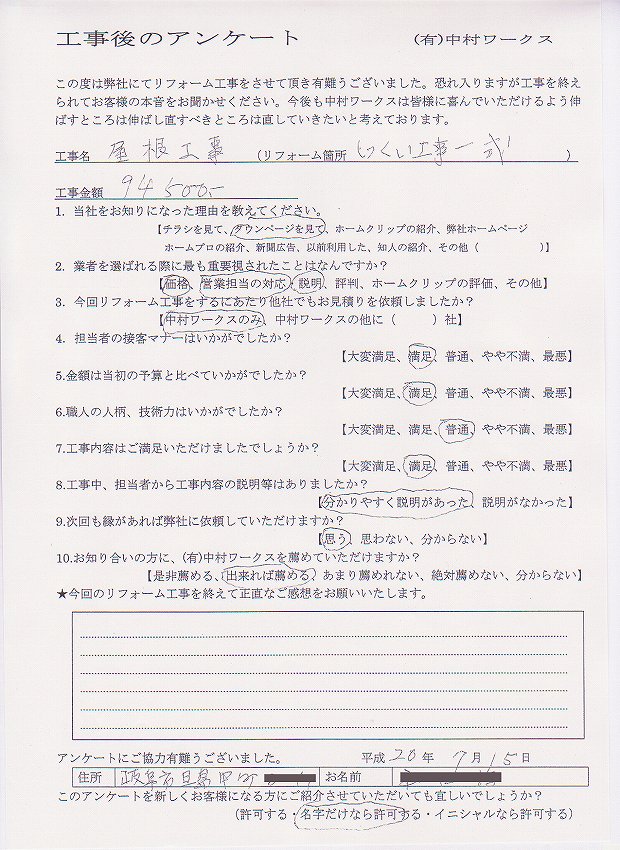 工事後のアンケート (有)中村ワークス
この度は弊社にてリフォーム工事をさせて頂き有難うございました。恐れ入りますが工事を終え
られてお客様の本音をお聞かせください。今後も中村ワークスは皆様に喜んでいただけるよう伸
ばすところは伸ばし直すべきところは直していきたいと考えております。
工事名 屋根工事 (リフォーム箇所 しっくい工事一式 )
工事金額 94500.-
1. 当社をお知りになった理由を教えてください。
【チラシを見て、タウンページを見て、ホームクリップの紹介、弊社ホームページ
ホームプロの紹介、新聞広告、以前利用した、知人の紹介、その他( )】
2. 業者を選ばれる際に最も重要視されたことはなんですか？
【価格、営業担当の対応、説明、評判、ホームクリップの評価、その他】
3. 今回リフォーム工事をするにあたり他社でもお見積りを依頼しましたか？
【中村ワークスのみ、中村ワークスの他に( )社】
4. 担当者の接客マナーはいかがでしたか？
【大変満足、満足、普通、やや不満、最悪】
5.金額は当初の予算と比べていかがでしたか？
【大変満足、満足、普通、やや不満、最悪】
6.職人の人柄、技術力はいかがでしたか？
【大変満足、満足、普通、やや不満、最悪】
7.工事内容はご満足いただけましたでしょうか？
【大変満足、満足、普通、やや不満、最悪】
8.工事中、担当者から工事内容の説明等はありましたか？
【分かりやすく説明があった、説明がなかった】
9.次回も縁があれば弊社に依頼していただけますか？
【思う、思わない、分からない】
10.お知り合いの方に、(有)中村ワークスを薦めていただけますか？
【是非薦める、出来れば薦める、あまり薦めれない、絶対薦めない、分からない】
★今回のリフォーム工事を終えて正直なご感想をお願いいたします。
アンケートにご協力有難うございました。 平成 20 年 9 月 15 日
住所 岐阜市 お名前
このアンケートを新しくお客様になる方にご紹介させていただいても宜しいでしょうか？
(許可する・名字だけなら許可する・イニシャルなら許可する)